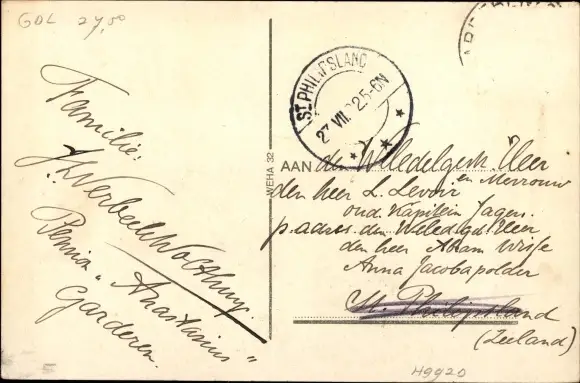 GDL 27,50
ST. PHILIPSLAND
27 VII. 2.5-6N
Familie:
Pension "Anastasius"
Garderen.
WEHA 32
AAN den Weledelgestr. Heer
en Mevrouw
den heer L. Levoir
oud Kapitein Jagers.
p. adres. den Weledgeb Heer
den heer Abram Wisse
Anna Jacobapolder
St. Philipsland
(Zeeland)
H9920